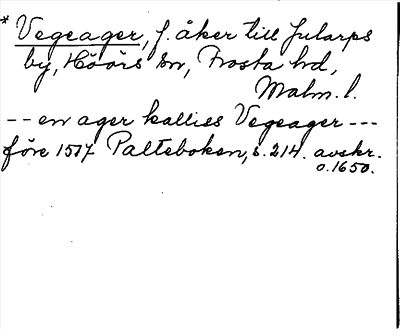 * Vegeager, f. åker till Jularps
by, Höörs sn, Frosta hd,
Malm. l.
-- en ager kallies Vegeager ---
före 1517 Palteboken, s. 214. avskr.
o. 1650.